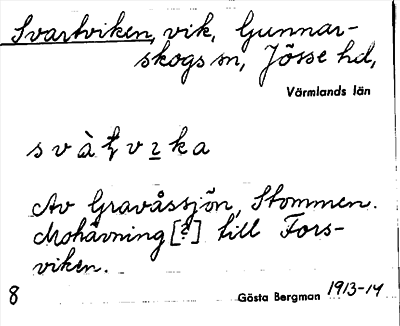 Svartviken, vik, Gunnar-
skogs sn, Jösse hd,
Värmlands län
Av Gravåssjön, Stommen.
Mohävning [?] till Fors-
viken.
8 Gösta Bergman 1913-14